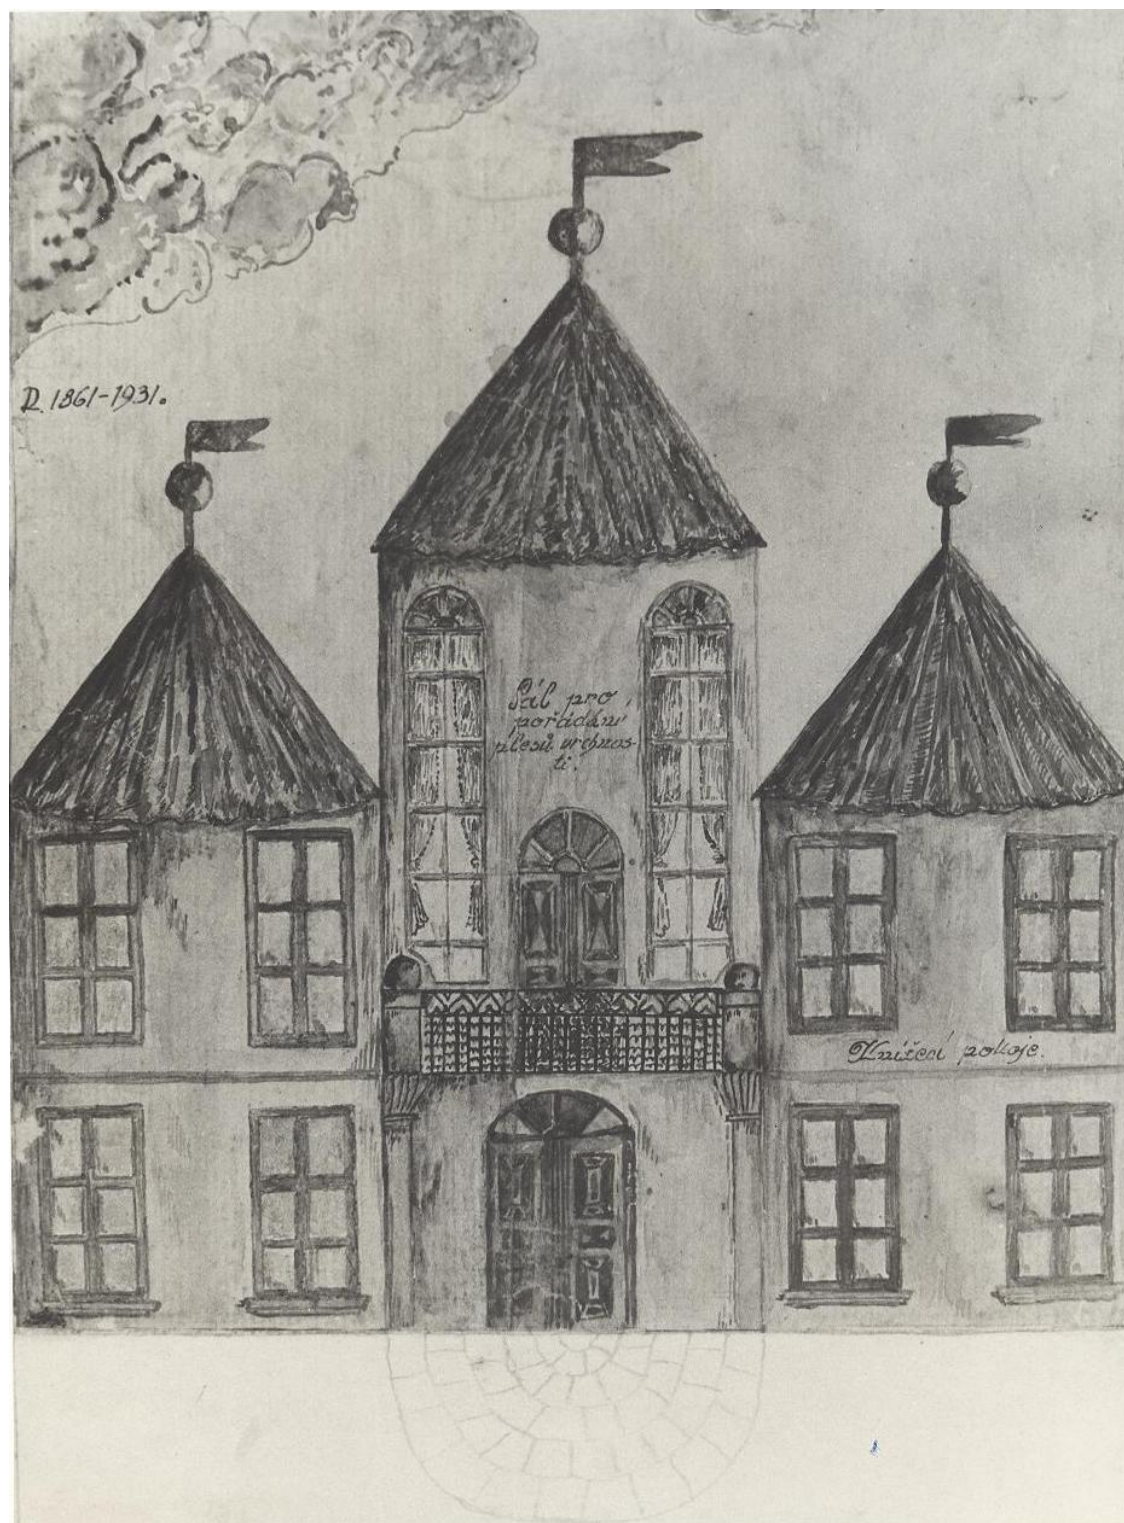 R. 1861-1931.
Sál pro
pořádání
plesů vrchnos-
ti.
Knížecí pokoje.